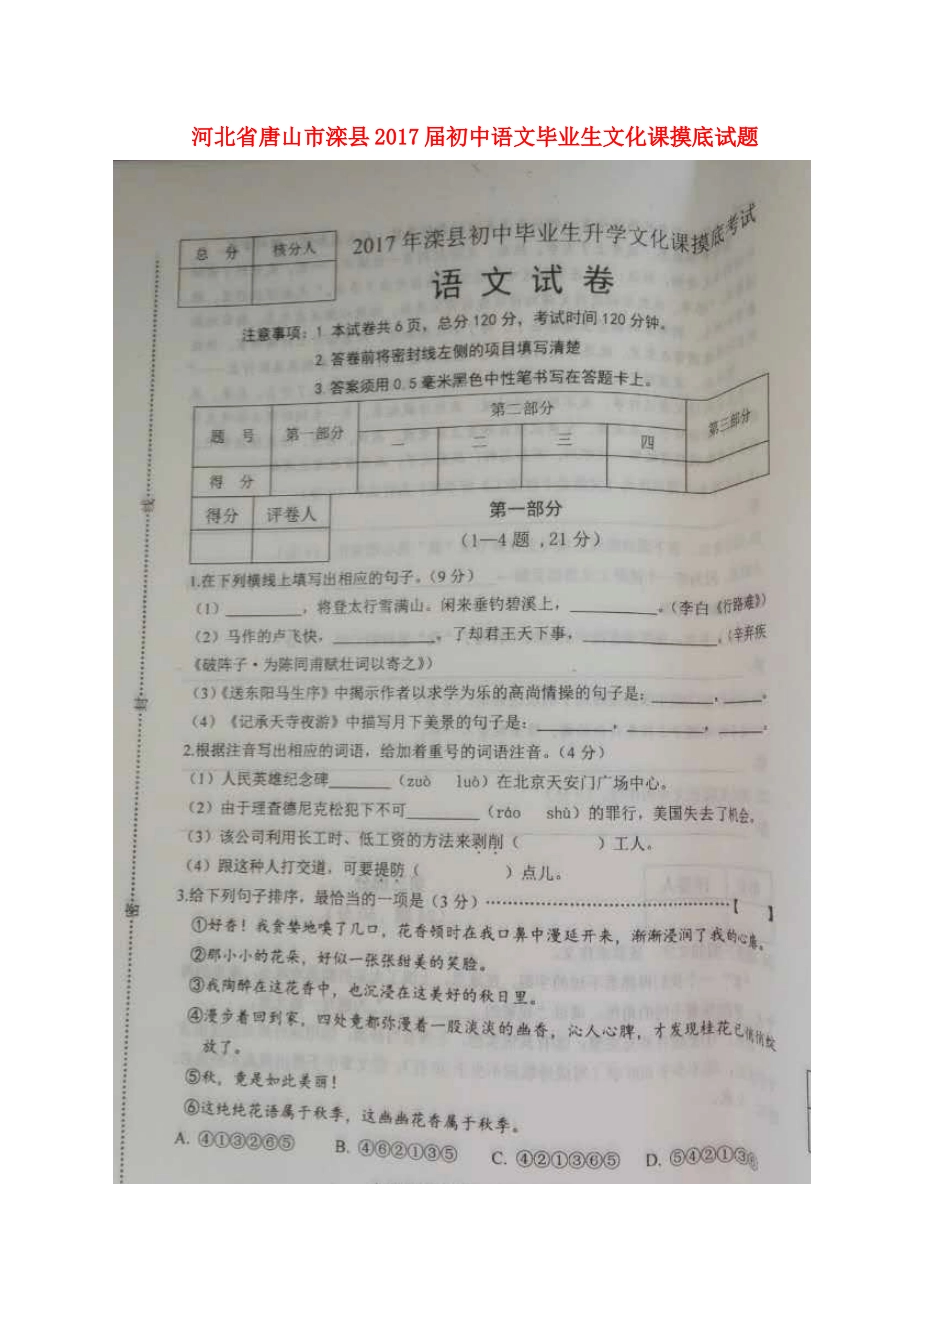 河北省唐山市滦县2017届初中语文毕业生文化课摸底试题
总 分 核分人
2017年滦县初中毕业生升学文化课摸底考试
语文试卷
注意事项：1.本试卷共6页，总分120分，考试时间120分钟。
2.答卷前将密封线左侧的项目填写清楚
3.答案须用0.5毫米黑色中性笔书写在答题卡上。
题 号 第一部分 第二部分 第三部分
一 二 三 四
得 分
得分 评卷人
第一部分
（1—4题，21分）
1.在下列横线上填写出相应的句子。（9分）
（1）________，将登太行雪满山。闲来垂钓碧溪上，________。（李白《行路难》）
（2）马作的卢飞快，________。了却君王天下事，________。（辛弃疾
《破阵子·为陈同甫赋壮词以寄之》）
（3）《送东阳马生序》中揭示作者以求学为乐的高尚情操的句子是：________，________。
（4）《记承天寺夜游》中描写月下美景的句子是：________，________，________。
2.根据注音写出相应的词语，给加着重号的词语注音。（4分）
（1）人民英雄纪念碑________（zuò luò）在北京天安门广场中心。
（2）由于理查德尼克松犯下不可________（ráo shù）的罪行，美国失去了机会。
（3）该公司利用长工时、低工资的方法来剥削（ ）工人。
（4）跟这种人打交道，可要提防（ ）点儿。
3.给下列句子排序，最恰当的一项是（3分）…………………………………【 】
①好香！我贪婪地嗅了几口，花香顿时在我口鼻中漫延开来，渐渐浸润了我的心扉。
②那小小的花朵，好似一张张甜美的笑脸。
③我陶醉在这花香中，也沉浸在这美好的秋日里。
④漫步着回到家，四处竟都弥漫着一股淡淡的幽香，沁人心脾，才发现桂花已悄悄绽
放了。
⑤秋，竟是如此美丽！
⑥这纯纯花语属于秋季，这幽幽花香属于秋季。
A. ④①③②⑥⑤ B. ④⑥②①③⑤ C. ④②①③⑥⑤ D. ⑤④②①③⑥
线
封
密